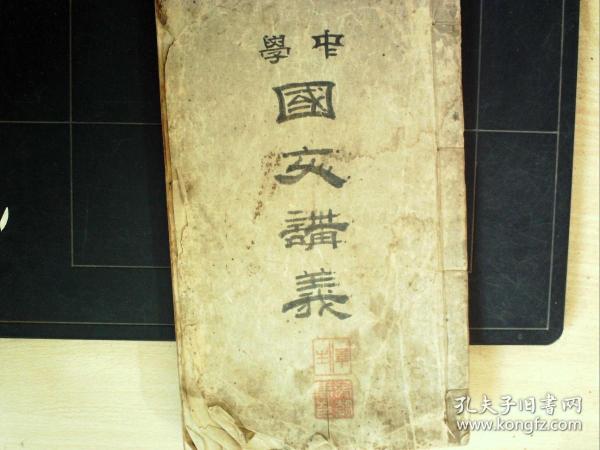 中學
國文講義
孔夫子旧书网
www.kongfz.com